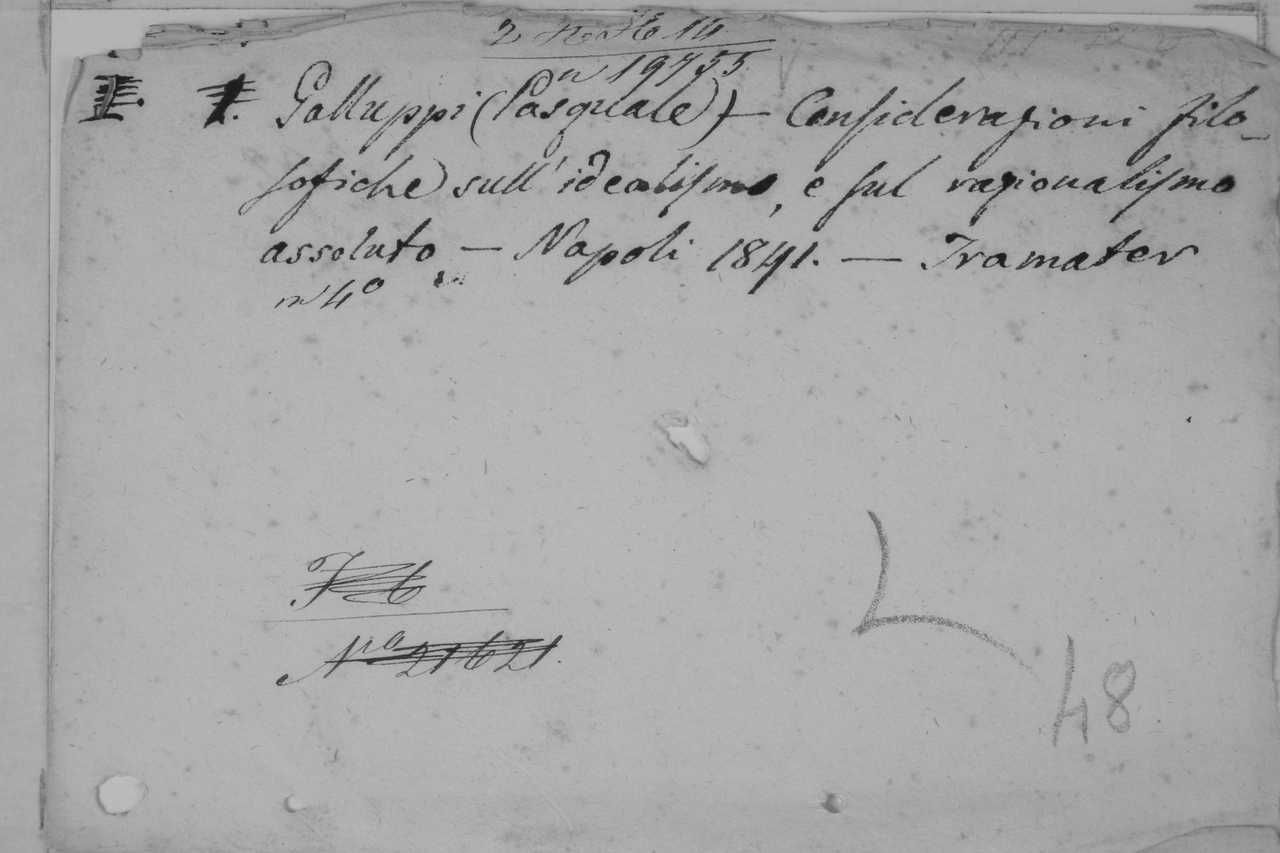 n 19755
I. 1. Galluppi (Pasquale) — Considerazioni filo-
sofiche sull'idealismo, e sul razionalismo
assoluto — Napoli 1841. — Tramater
in 4º
Nrº 21621.
L
48